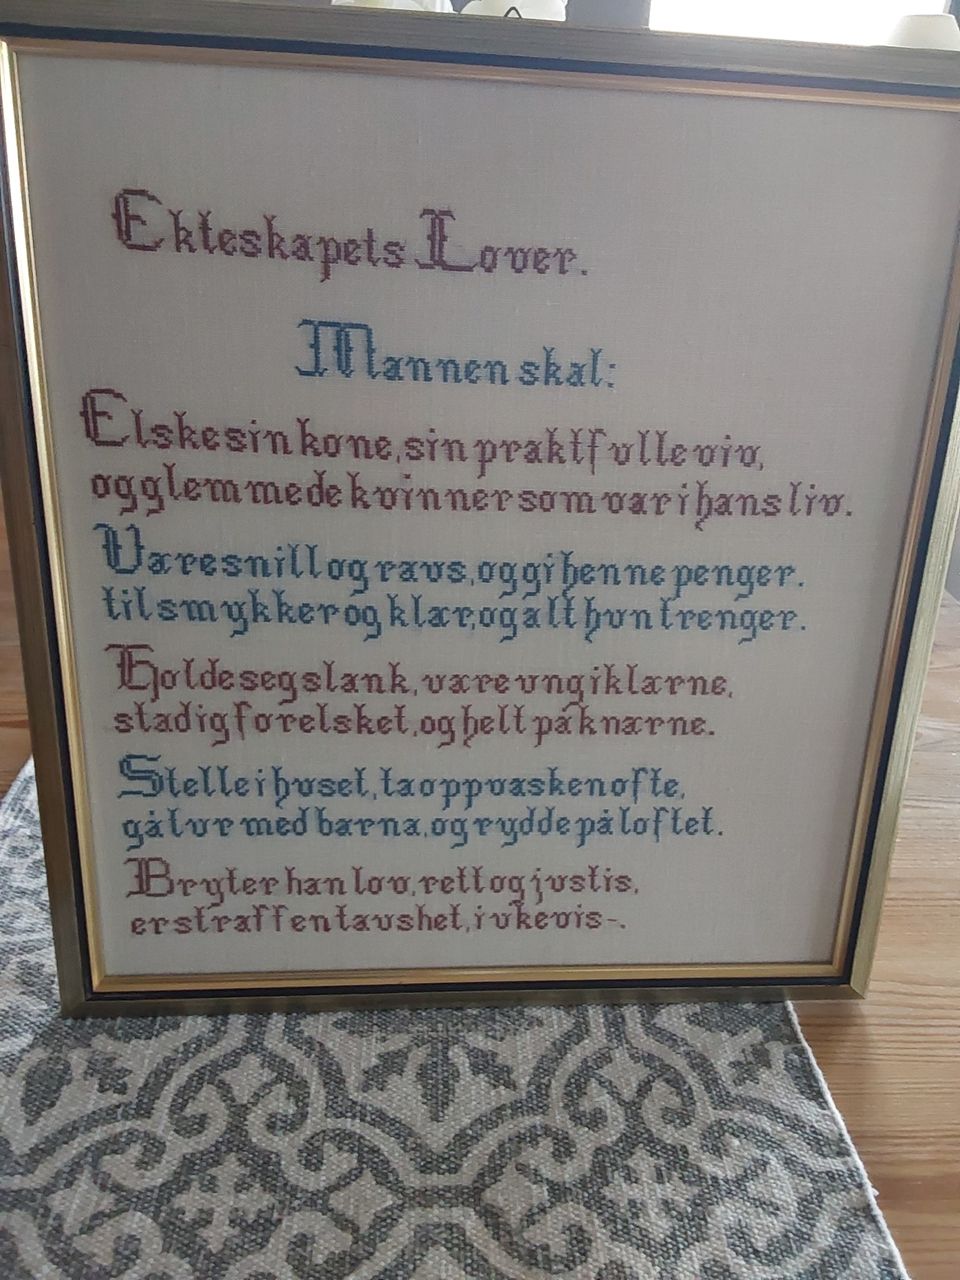 Ekteskapets Lover.
Mannen skal:
Elske sin kone, sin praktfulle viv,
og glemme de kvinner som var i hans liv.
Være snill og raus, og gi henne penger.
til smykker og klær, og alt hun trenger.
Holde seg slank, være ung i klærne,
stadig forelsket, og helt på knærne.
Stelle i huset, ta oppvasken ofte,
gå tur med barna, og rydde på loftet.
Bryter han lov, rett og justis,
er straffen taushet, i ukevis-.